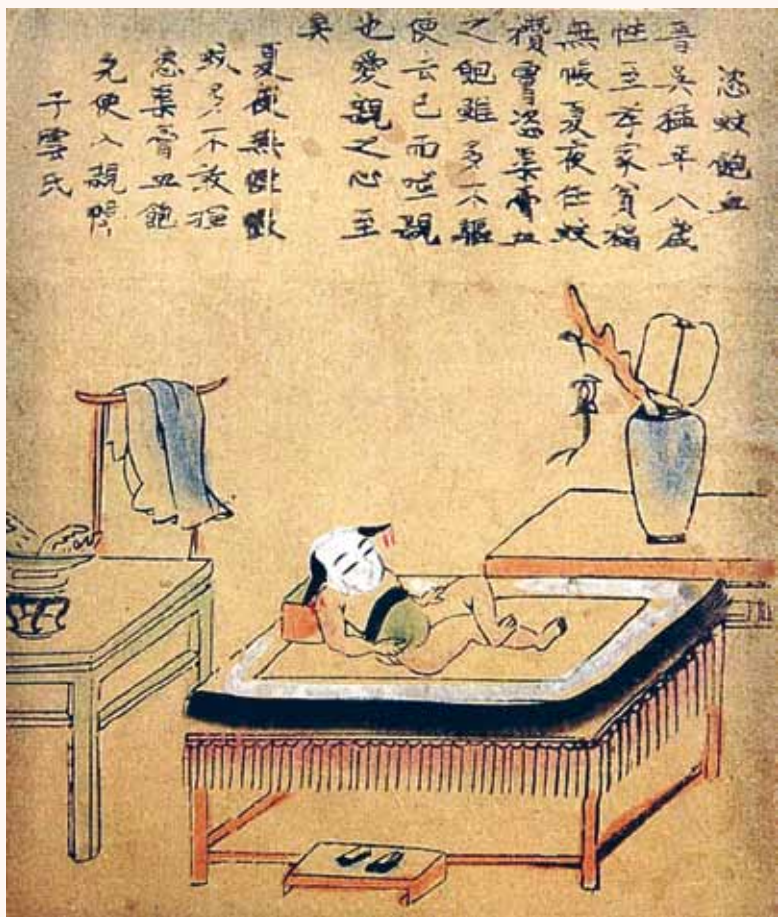 恣蚊飽血
晋吳猛年八歲
性至孝家貧榻
無帳夏夜任蚊
攢膚恣渠膏血
之飽雖多不驅
使去己而噬親
也愛親之心至
矣
夏夜無帷帳
蚊多不敢揮
恣渠膏血飽
免使入親闈
子雲氏